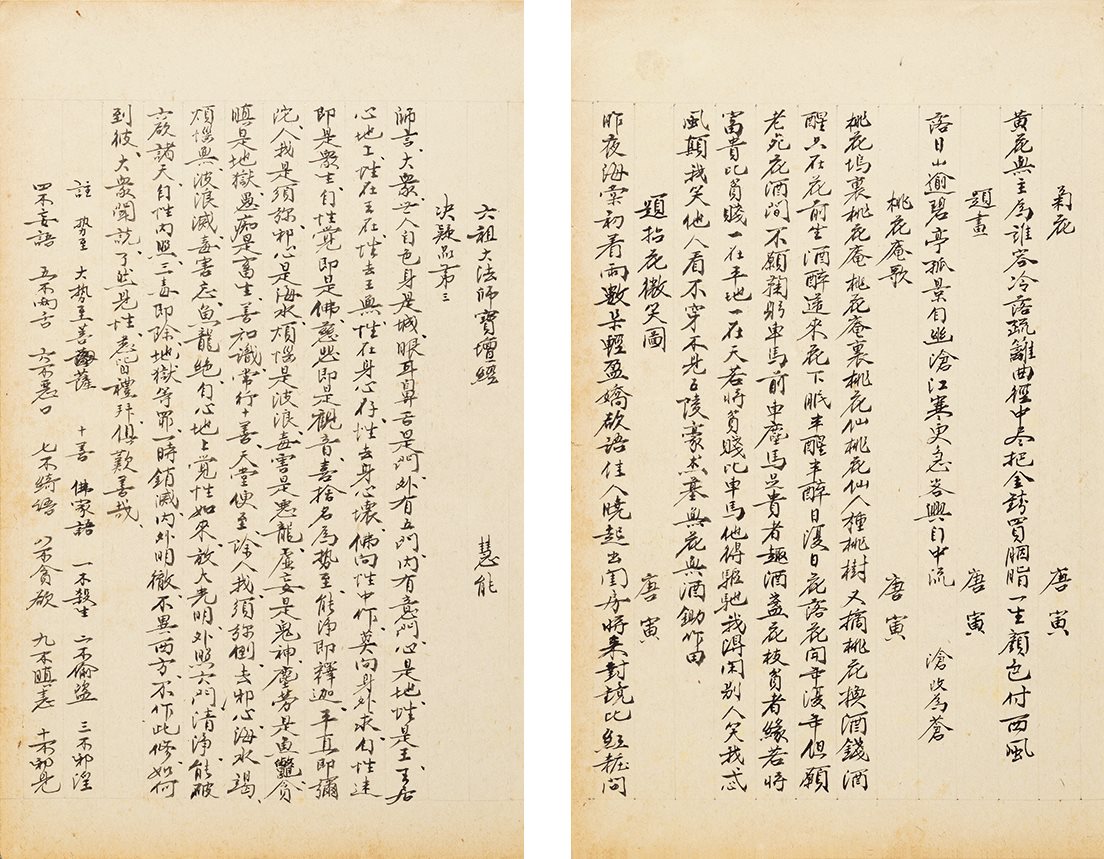 菊花 唐寅
黃花無主為誰容冷落疏籬曲徑中盡把金錢買胭脂一生顏色付西風
題畫 唐寅
落日山逾碧亭孤景自幽滄江寒更急客興自中流 滄改為蒼
桃花庵歌 唐寅
桃花塢裏桃花庵桃花庵裏桃花仙桃花仙人種桃樹又摘桃花換酒錢酒
醒只在花前坐酒醉還來花下眠半醒半醉日復日花落花開年復年但願
老死花酒間不願鞠躬車馬前車塵馬足貴者趣酒盞花枝貧者緣若將
富貴比貧賤一在平地一在天若將貧賤比車馬他得驅馳我得閑別人笑我忒
風顛我笑他人看不穿不見五陵豪杰墓無花無酒鋤作田
題拈花微笑圖 唐寅
昨夜海棠初着雨數朵輕盈嬌欲語佳人曉起出閨房時來對鏡比紅粧問
六祖大法師寶壇經 慧能
決疑品第三
師言大衆世人自色身是城眼耳鼻舌是門外有五門內有意門心是地性是王王居
心地上性在王在性去王無性在身心存性去身心壞佛向性中作莫向身外求自性迷
即是衆生自性覺即是佛慈悲即是觀音喜捨名為勢至能淨即釋迦平直即彌
沱人我是須弥邪心是海水煩惱是波浪毒害是惡龍虛妄是鬼神塵勞是魚鼈貪
瞋是地獄愚痴是畜生善知識常行十善天堂便至除人我須弥倒去邪心海水竭
煩惱無波浪滅毒害忘魚龍絕自心地上覺性如來放大光明外照六門清淨能破
六欲諸天自性內照三毒即除地獄等罪一時銷滅內外明徹不異西方不作此修如何
到彼大衆聞說了然見性悉皆禮拜俱歎善哉
註 勢至 大勢至菩薩 十善 佛家語 一不殺生 二不偷盜 三不邪淫
四不妄語 五不兩舌 六不惡口 七不綺語 八不貪欲 九不瞋恚 十不邪見